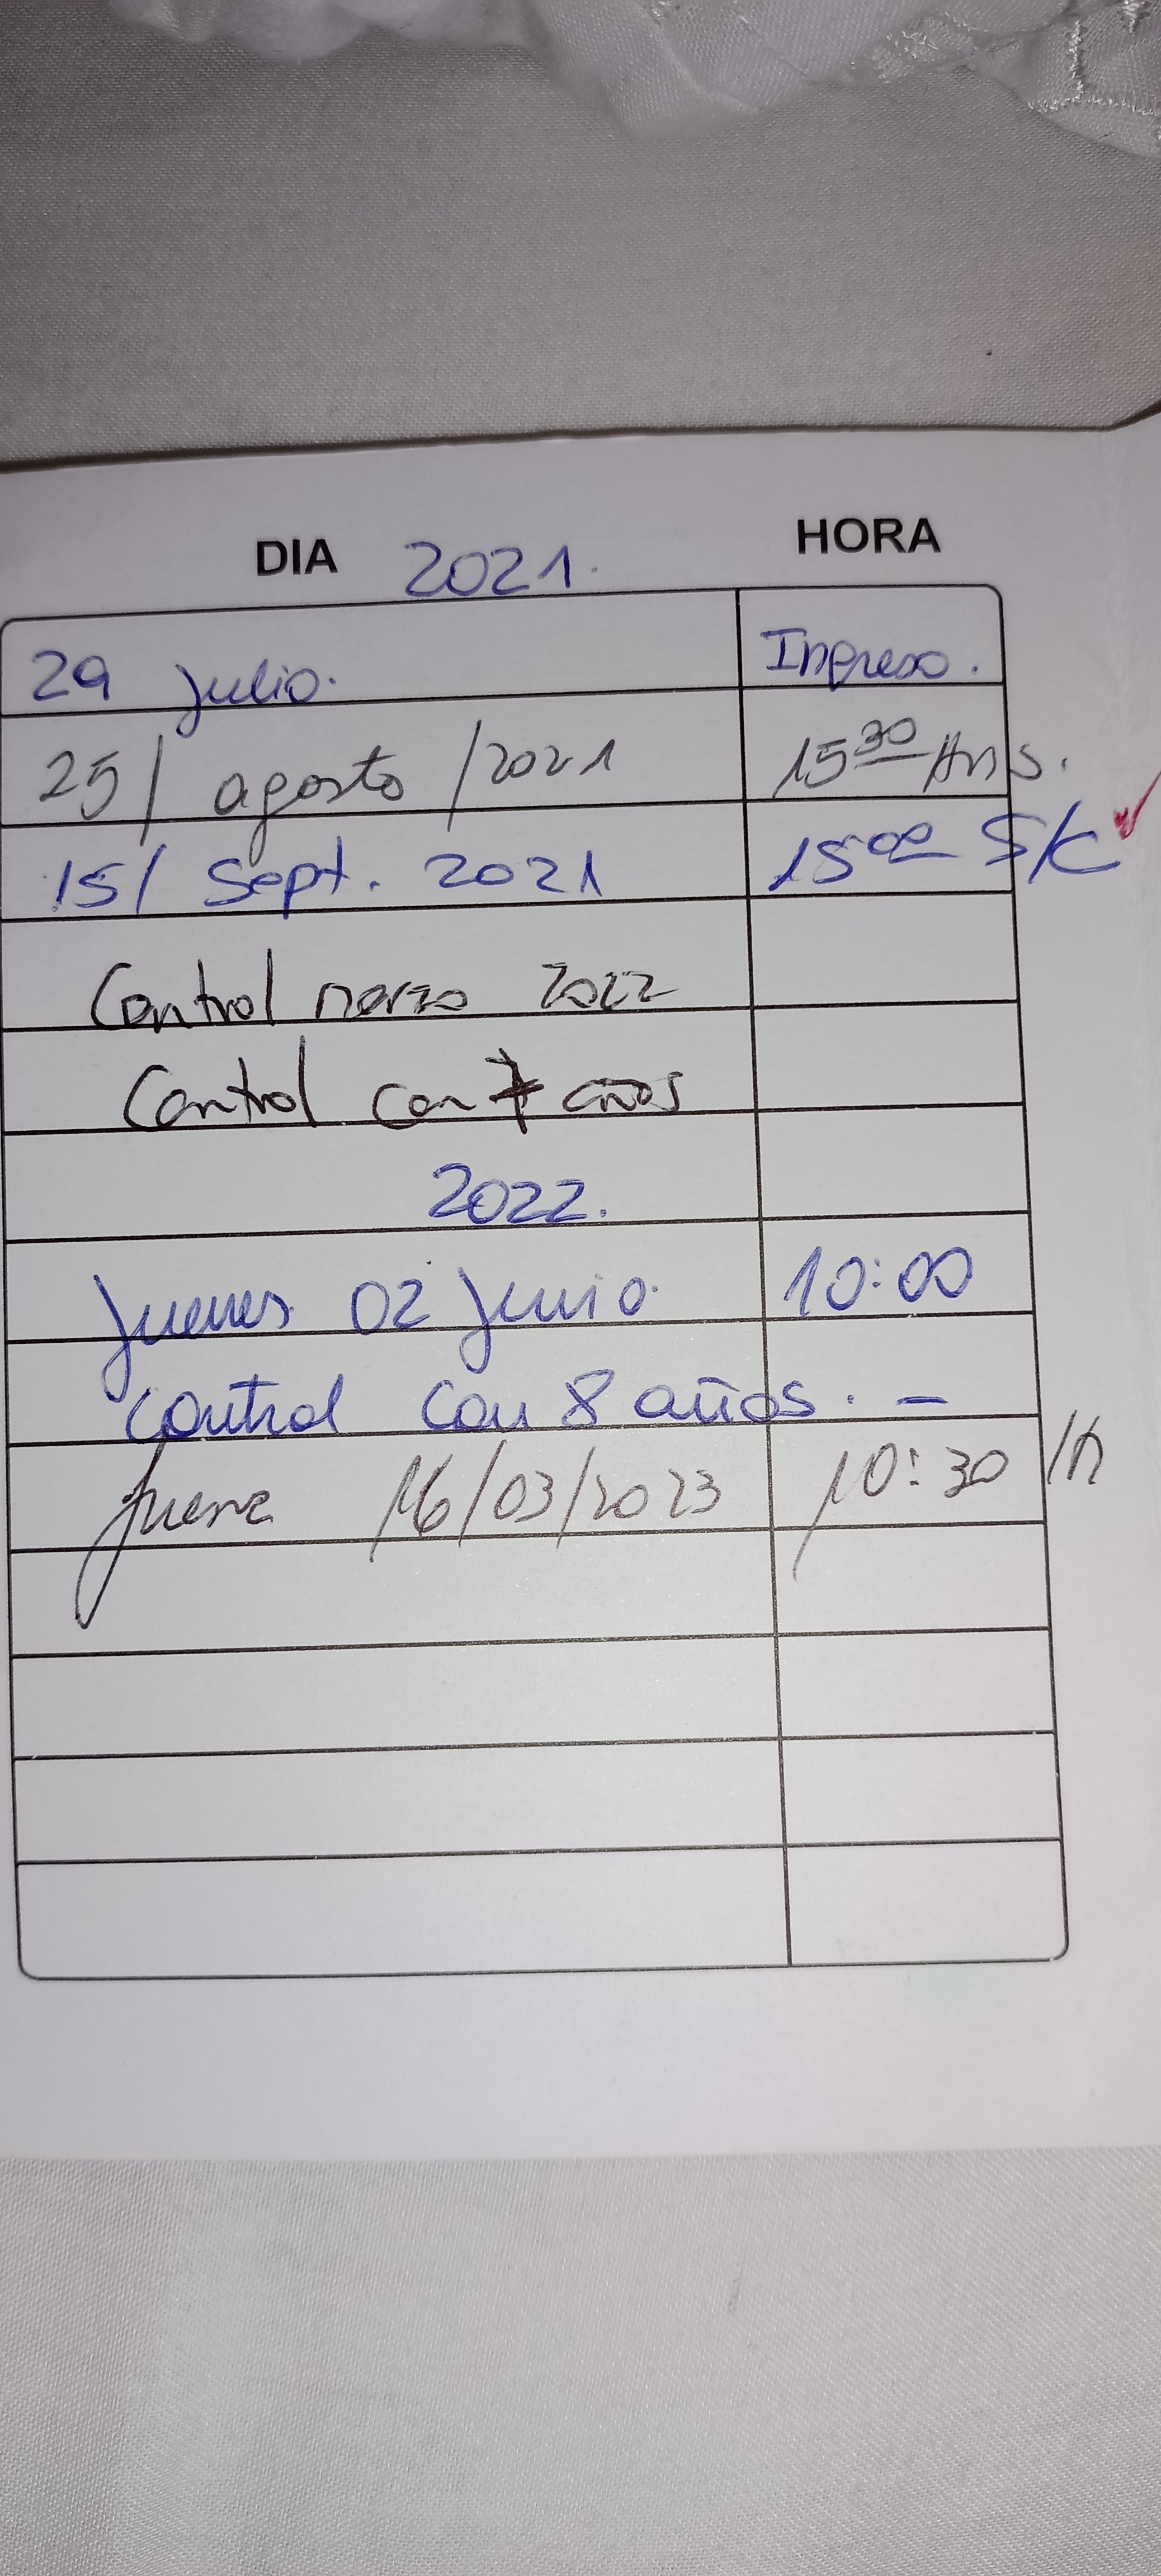 DIA 2021. HORA
29 julio. Ingreso.
25/ agosto /2021 15³⁰ Hrs.
15/ Sept. 2021 15⁰⁰ S/C
Control marzo 2022
Control con 7 años
2022.
Jueves 02 Junio. 10:00
control con 8 años. -
Jueves 16/03/2023 10:30 /h